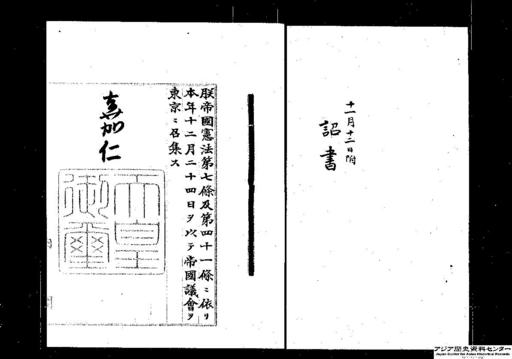 十一月十二日附
詔書
朕帝國憲法第七條及第四十一條ニ依リ
本年十二月二十四日ヲ以テ帝國議會ヲ
東京ニ召集ス
嘉仁
天皇
御璽
アジア歴史資料センター
Japan Center for Asian Historical Records